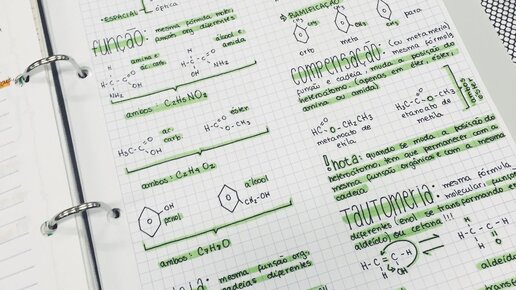 •ESPACIAL
óptica
função: mesma fórmula mole
funções org diferentes
amina e
ác. carb.
álcool e
amida
H-C-C
O
OH
NH2
H-C-C
OH
O
NH2
ambos: C2H5NO2
ác.
carb.
éster
H3C-C
O
OH
H-C
O
O-CH3
ambos: C2H4O2
OH
fenol
álcool
CH2-OH
ambos: C7H8O
mesma função org.
cadeias diferentes
RAMIFICAÇÃO
CH3
CH3
CH3
CH3
orto
meta
para
compensação: (ou metameria)
mesma fórmula
função e cadeia; muda a posição do
heteroátomo (apenas em éter, éster,
amina ou amida)
HC
O
O-CH2CH3
metanoato de
etila
H3C-C
O
O-CH3
etanoato de
metila
ambos
ésteres
!nota: quando se muda a posição do
heteroátomo, tem que permanecer com a
mesma função orgânica e com a mesma
cadeia.
TAUTOMERIA: mesma fórmula
molecular; funções
diferentes (enol se transformando em
aldeído) ou cetona!!!
H-C=C-H
H
OH
H-C-C
H
H
aldeído